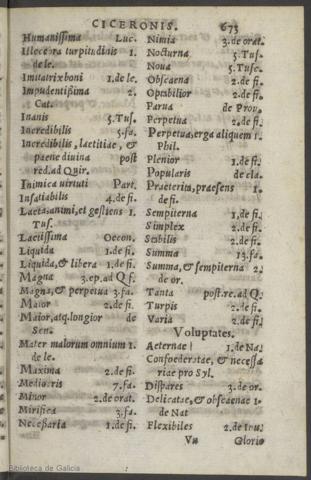 CICERONIS. 675
Humanissima Luc.
Illecebra turpitudinis 1.
de le.
Imitatrix boni 1. de le.
Impudentißima 2.
Cat.
Inanis 5. Tus.
Incredibilis 5. fa.
Incredibilis, laetitiae, &
paene diuina post
red. ad Quir.
Inimica uirtuti Part.
Insatiabilis 4. de fi.
Laeta, animi, et gestiens 1.
Tus.
Laetissima Oecon.
Liquida 1. de fi.
Liquida, & libera 1. de fi.
Magna 3. ep. ad Q f.
Magna, & perpetua 3. fa.
Maior 2. de fi.
Maior, atq. longior de
Sen.
Mater malorum omnium 1.
de le.
Maxima 2. de fi.
Mediocris 7. fa.
Minor 2. de orat.
Mirifica 3. fa.
Neceßaria 1. de fi.
Nimia 3. de orat.
Nocturna 5. Tus.
Noua 5. Tusc.
Obscaena 2. de fi.
Optabilior 2. de fi.
Parua de Prou.
Perpetua 2. de fi.
Perpetua, erga aliquem 1.
Phil.
Plenior 1. de fi.
Popularis de cla.
Praeterita, praesens 1.
de fi.
Sempiterna 1. de fi.
Simplex 2. de fi.
Stabilis 2. de fi.
Summa 13. fa.
Summa, & sempiterna 2.
de or.
Tanta post. re. ad Q.
Turpis 2. de fi.
Varia 2. de fi.
Voluptates.
Aeternae 1. de Na.
Confoederatae, & necessa
riae pro Syl.
Dispares 3. de or.
Delicatae, & obscaenae 1.
de Nat
Flexibiles 2. de inu.
Vu Glorio
Biblioteca de Galicia